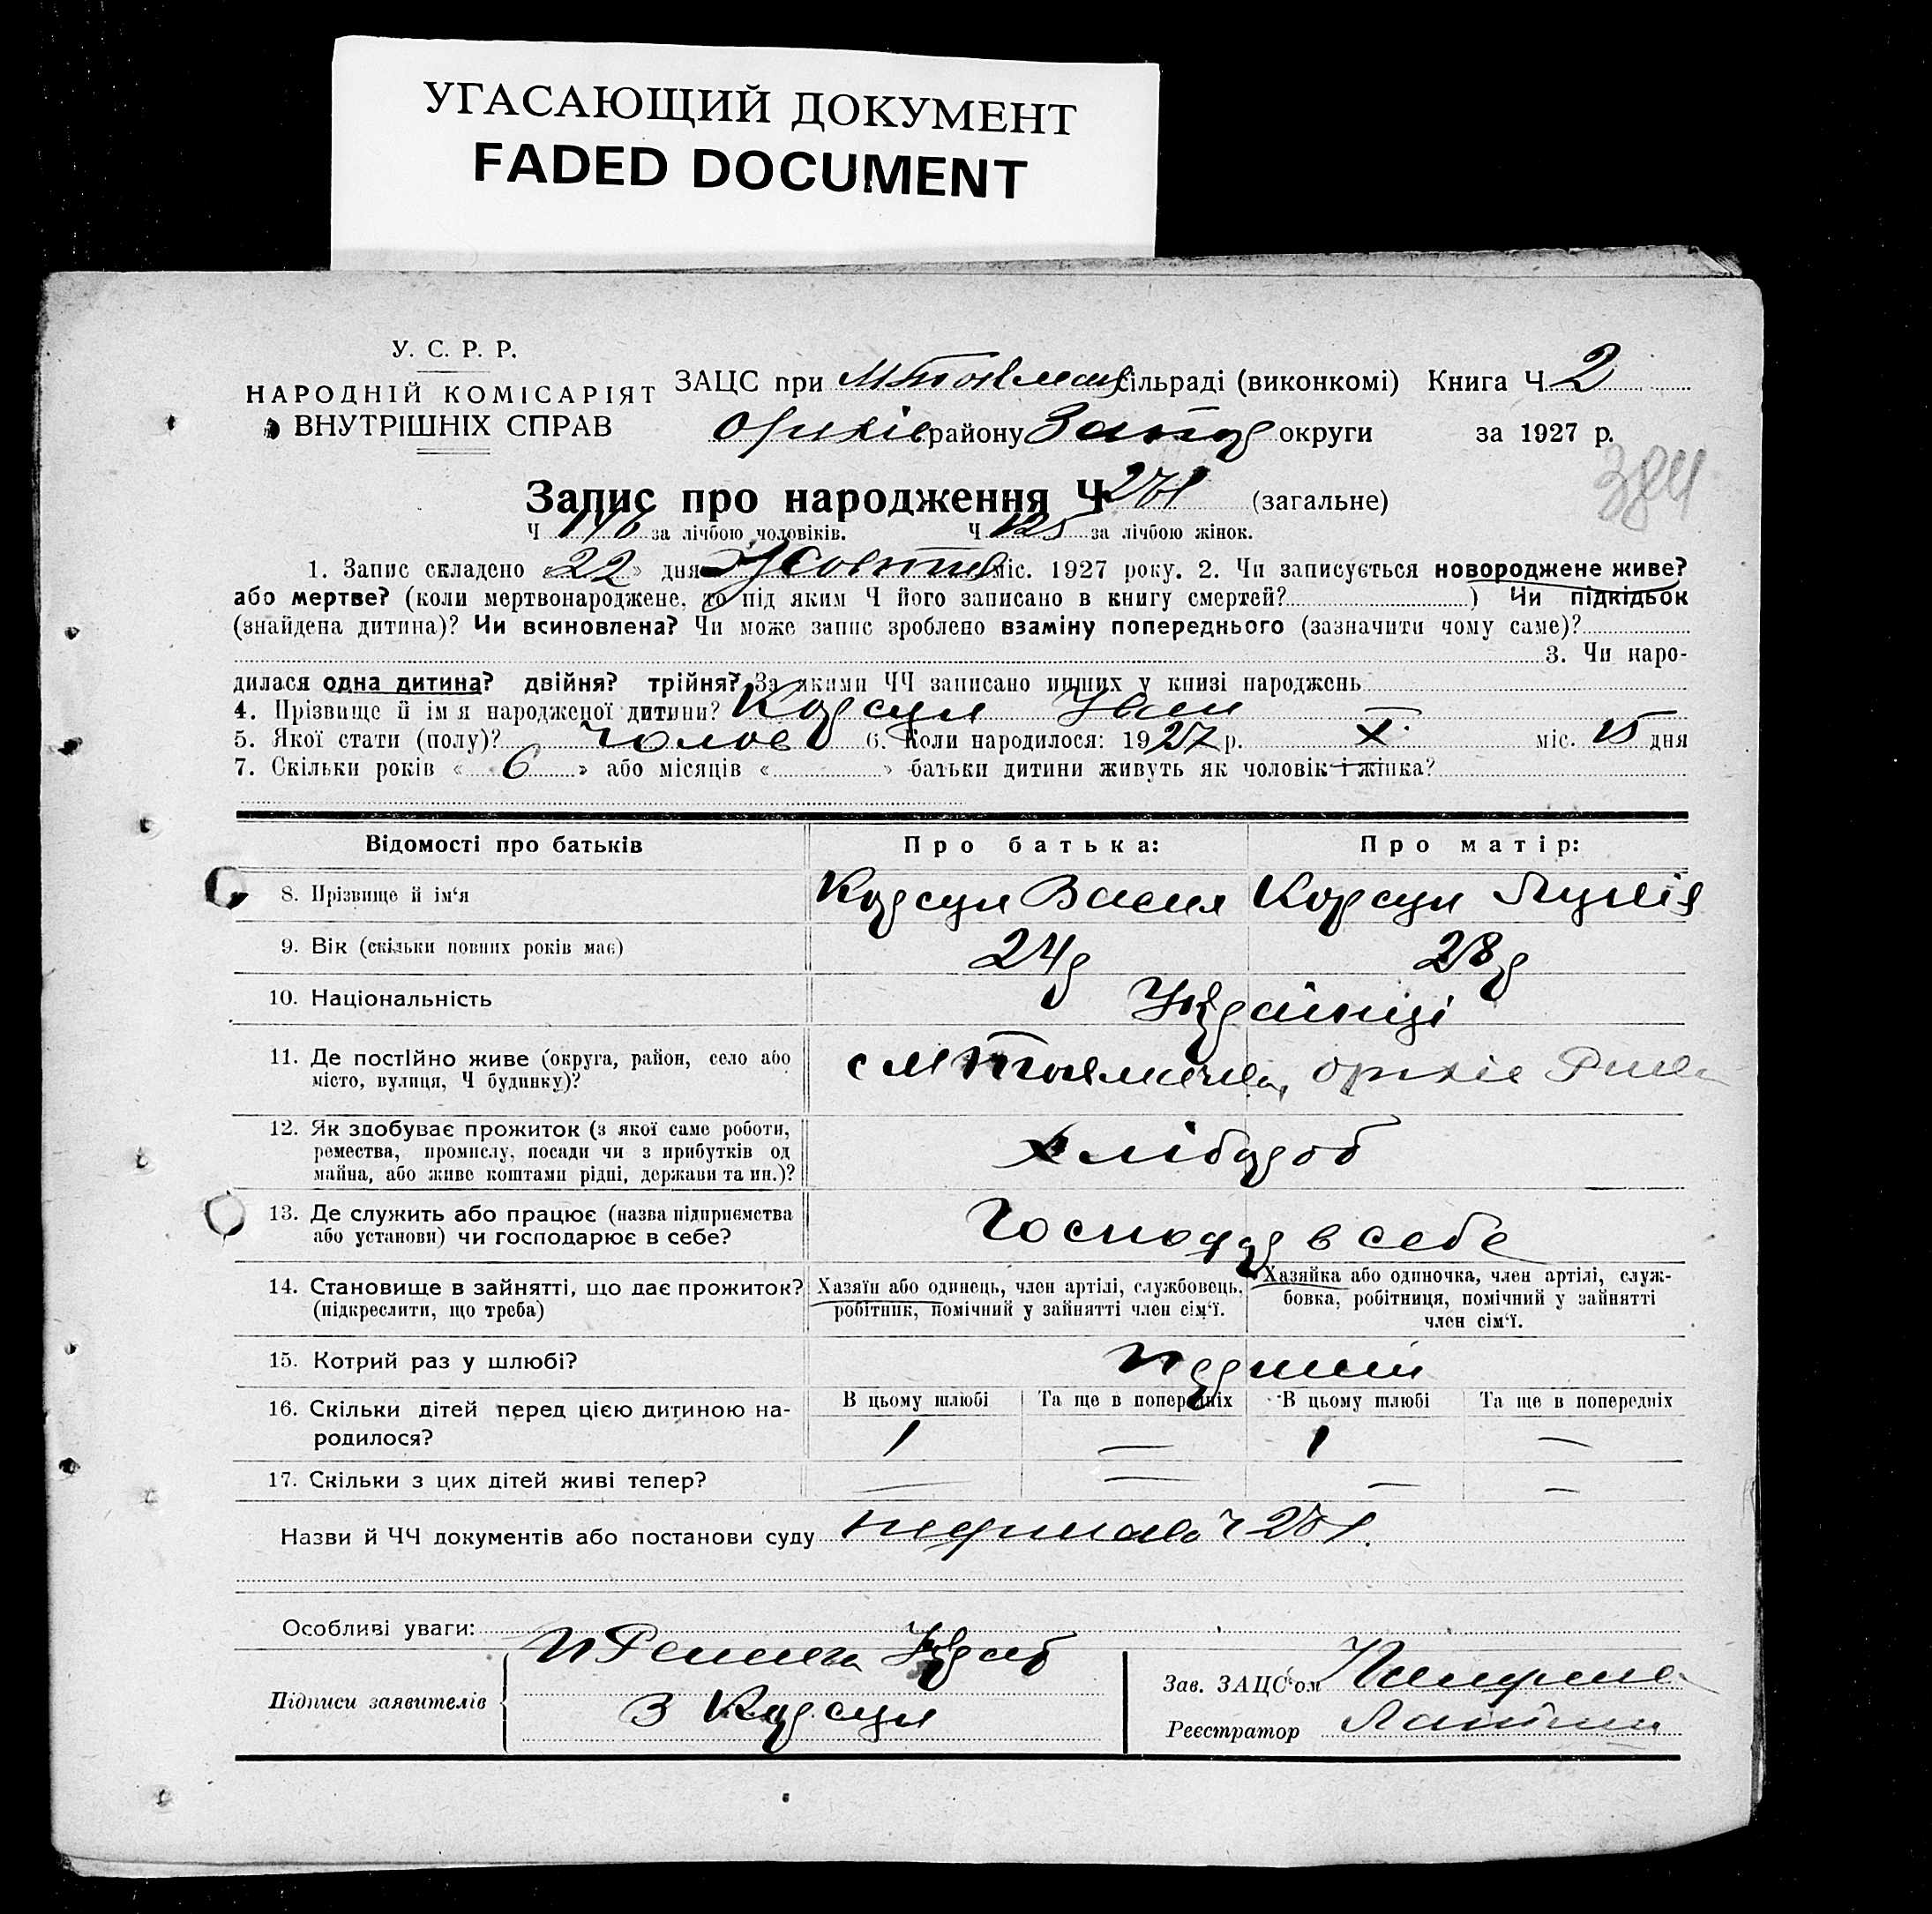 УГАСАЮЩИЙ ДОКУМЕНТ
FADED DOCUMENT
У. С. Р. Р.
НАРОДНІЙ КОМІСАРІЯТ
ВНУТРІШНІХ СПРАВ
ЗАЦС при сільраді (виконкомі) Книга Ч. 2
Оріхів району Запор округи за 1927 р.
384
Запис про народження Ч 271 (загальне)
Ч 146 за лічбою чоловіків. Ч 125 за лічбою жінок.
1. Запис складено «22» дня Жовтня міс. 1927 року. 2. Чи записується новороджене живе?
або мертве? (коли мертвонароджене, то під яким Ч його записано в книгу смертей?) Чи підкідьок
(знайдена дитина)? Чи всиновлена? Чи може запис зроблено взаміну попереднього (зазначити чому саме)?
3. Чи наро-
дилася одна дитина? двійня? трійня? За якими ЧЧ записано инших у книзі народжень
4. Прізвище й ім я народженої дитини? Корсун Іван
5. Якої стати (полу)? чолов 6. Коли народилося: 1927 р. X міс. 15 дня
7. Скільки років «6» або місяців « » батьки дитини живуть як чоловік і жінка?
Відомості про батьків Про батька: Про матір:
8. Прізвище й ім‘я Корсун Васил Корсун
9. Вік (скільки повних років має) 24р 28р
10. Національність Українці
11. Де постійно живе (округа, район, село або
місто, вулиця, Ч будинку)?
12. Як здобуває прожиток (з якої саме роботи,
ремества, промислу, посади чи з прибутків од
майна, або живе коштами рідні, держави та ин.)?
хлібороб
13. Де служить або працює (назва підприємства
або установи) чи господарює в себе?
Господар в себе
14. Становище в зайнятті, що дає прожиток?
(підкреслити, що треба)
Хазяїн або одинець, член артілі, службовець,
робітник, помічний у зайнятті член сім‘ї.
Хазяйка або одиночка, член артілі, служ-
бовка, робітниця, помічний у зайнятті
член сім‘ї.
15. Котрий раз у шлюбі? перший
16. Скільки дітей перед цією дитиною на-
родилося?
В цьому шлюбі Та ще в попередніх В цьому шлюбі Та ще в попередніх
1 — 1 —
17. Скільки з цих дітей живі тепер? — — — —
Назви й ЧЧ документів або постанови суду ч 271.
Особливі уваги:
Підписи заявителів
З Корсун
Зав. ЗАЦС‘ом
Реєстратор